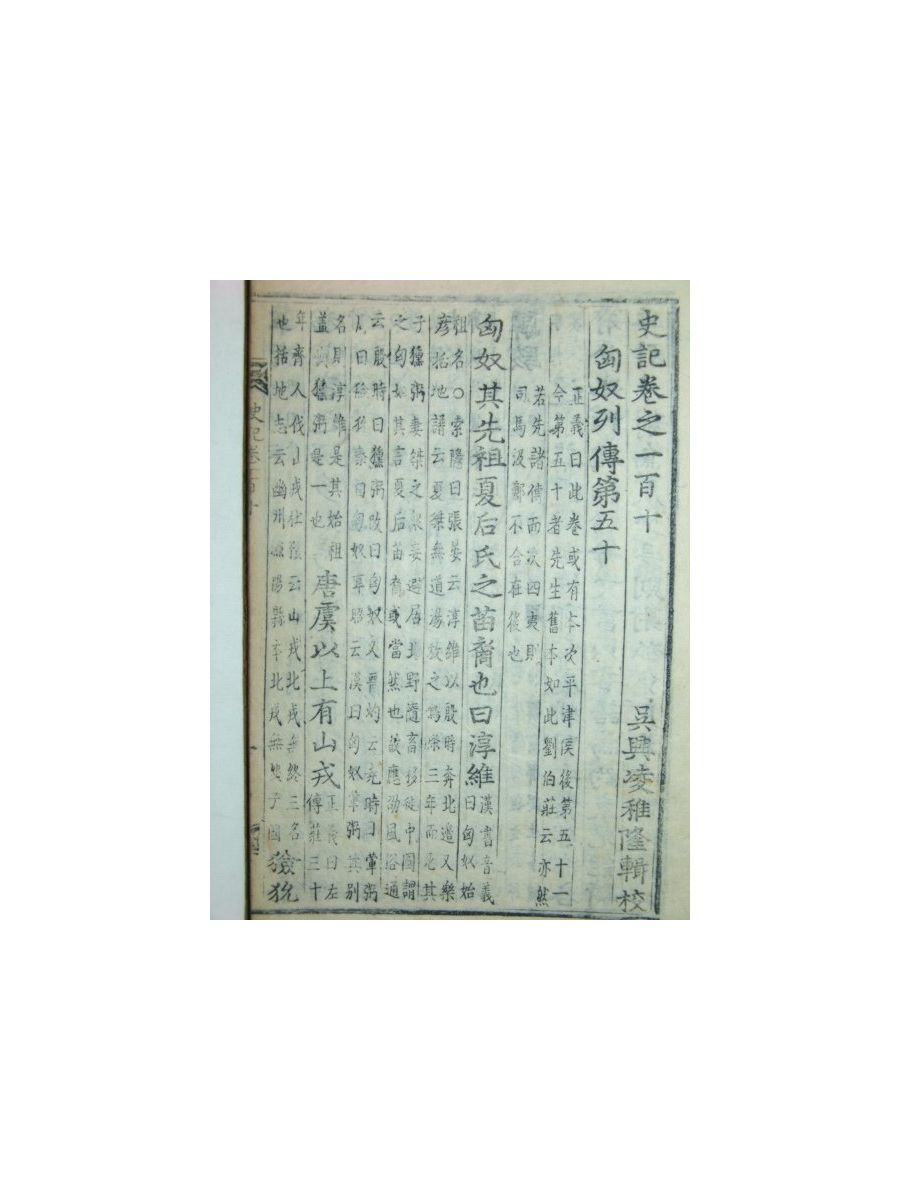 史記卷之一百十
吳興凌稚隆輯校
匈奴列傳第五十
正義曰此卷或有本次平津侯後第五十二
今第五十者先生舊本如此劉伯莊云亦然
若先諸傳而次四夷則
司馬汲鄭不合在後也
匈奴其先祖夏后氏之苗裔也曰淳維
漢書音義
曰匈奴始
祖名○索隱曰張晏云淳維以殷時奔北邊又樂
彥括地譜云夏桀無道湯放之鳴條三年而死其
子獯粥妻桀之衆妾避居北野隨畜移徙中國謂
之匈奴其言夏后苗裔或當然也故應劭風俗通
云殷時曰獯粥改曰匈奴又晉灼云堯時曰葷粥
周曰獫狁秦曰匈奴韋昭云漢曰匈奴葷粥其別
名則淳維是其始祖
蓋與獯粥是一也
唐虞以上有山戎
正義曰左
傳莊三十
年齊人伐山戎杜預云山戎北戎無終三名
也括地志云幽州漁陽縣本北戎無終子國
獫狁
史記卷一百十